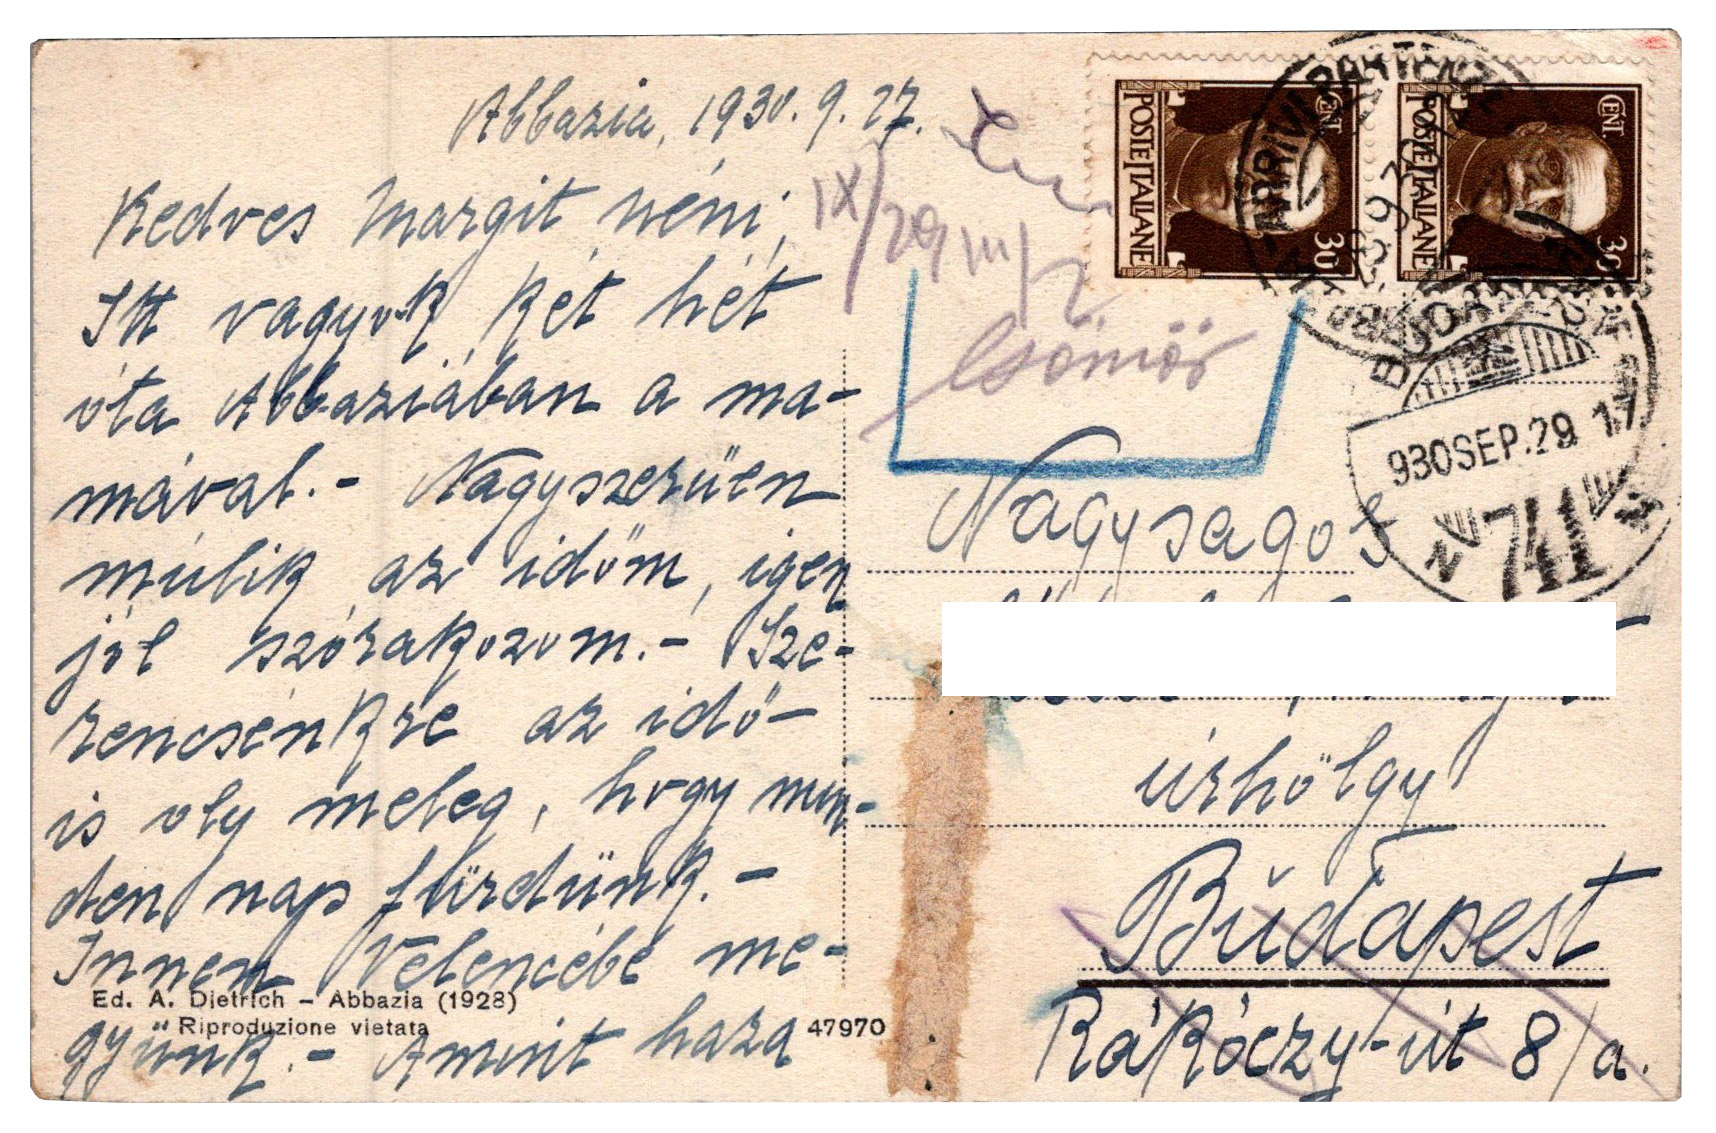 Abbazia, 1930. 9. 27.
Kedves Margit néni,
Itt vagyok két hét
óta Abbaziában a ma-
mával. - Nagyszerüen
múlik az időm, igen
jól szórakozom. - Sze-
rencsénkre az idő-
is oly meleg, hogy min-
den nap fürdünk. -
Innem Velencébe me-
gyünk. - Amint haza
Ed. A. Dietrich - Abbazia (1928)
Riproduzione vietata
47970
IX/29 III/2
Csömör
CENT. 30
POSTE ITALIANE
CENT. 30
POSTE ITALIANE
ARRIVI PARTENZE
28 9 30
930 SEP. 29 17
741
Nagysagos
úrhölgy
Budapest
Rákóczy-út 8/a.